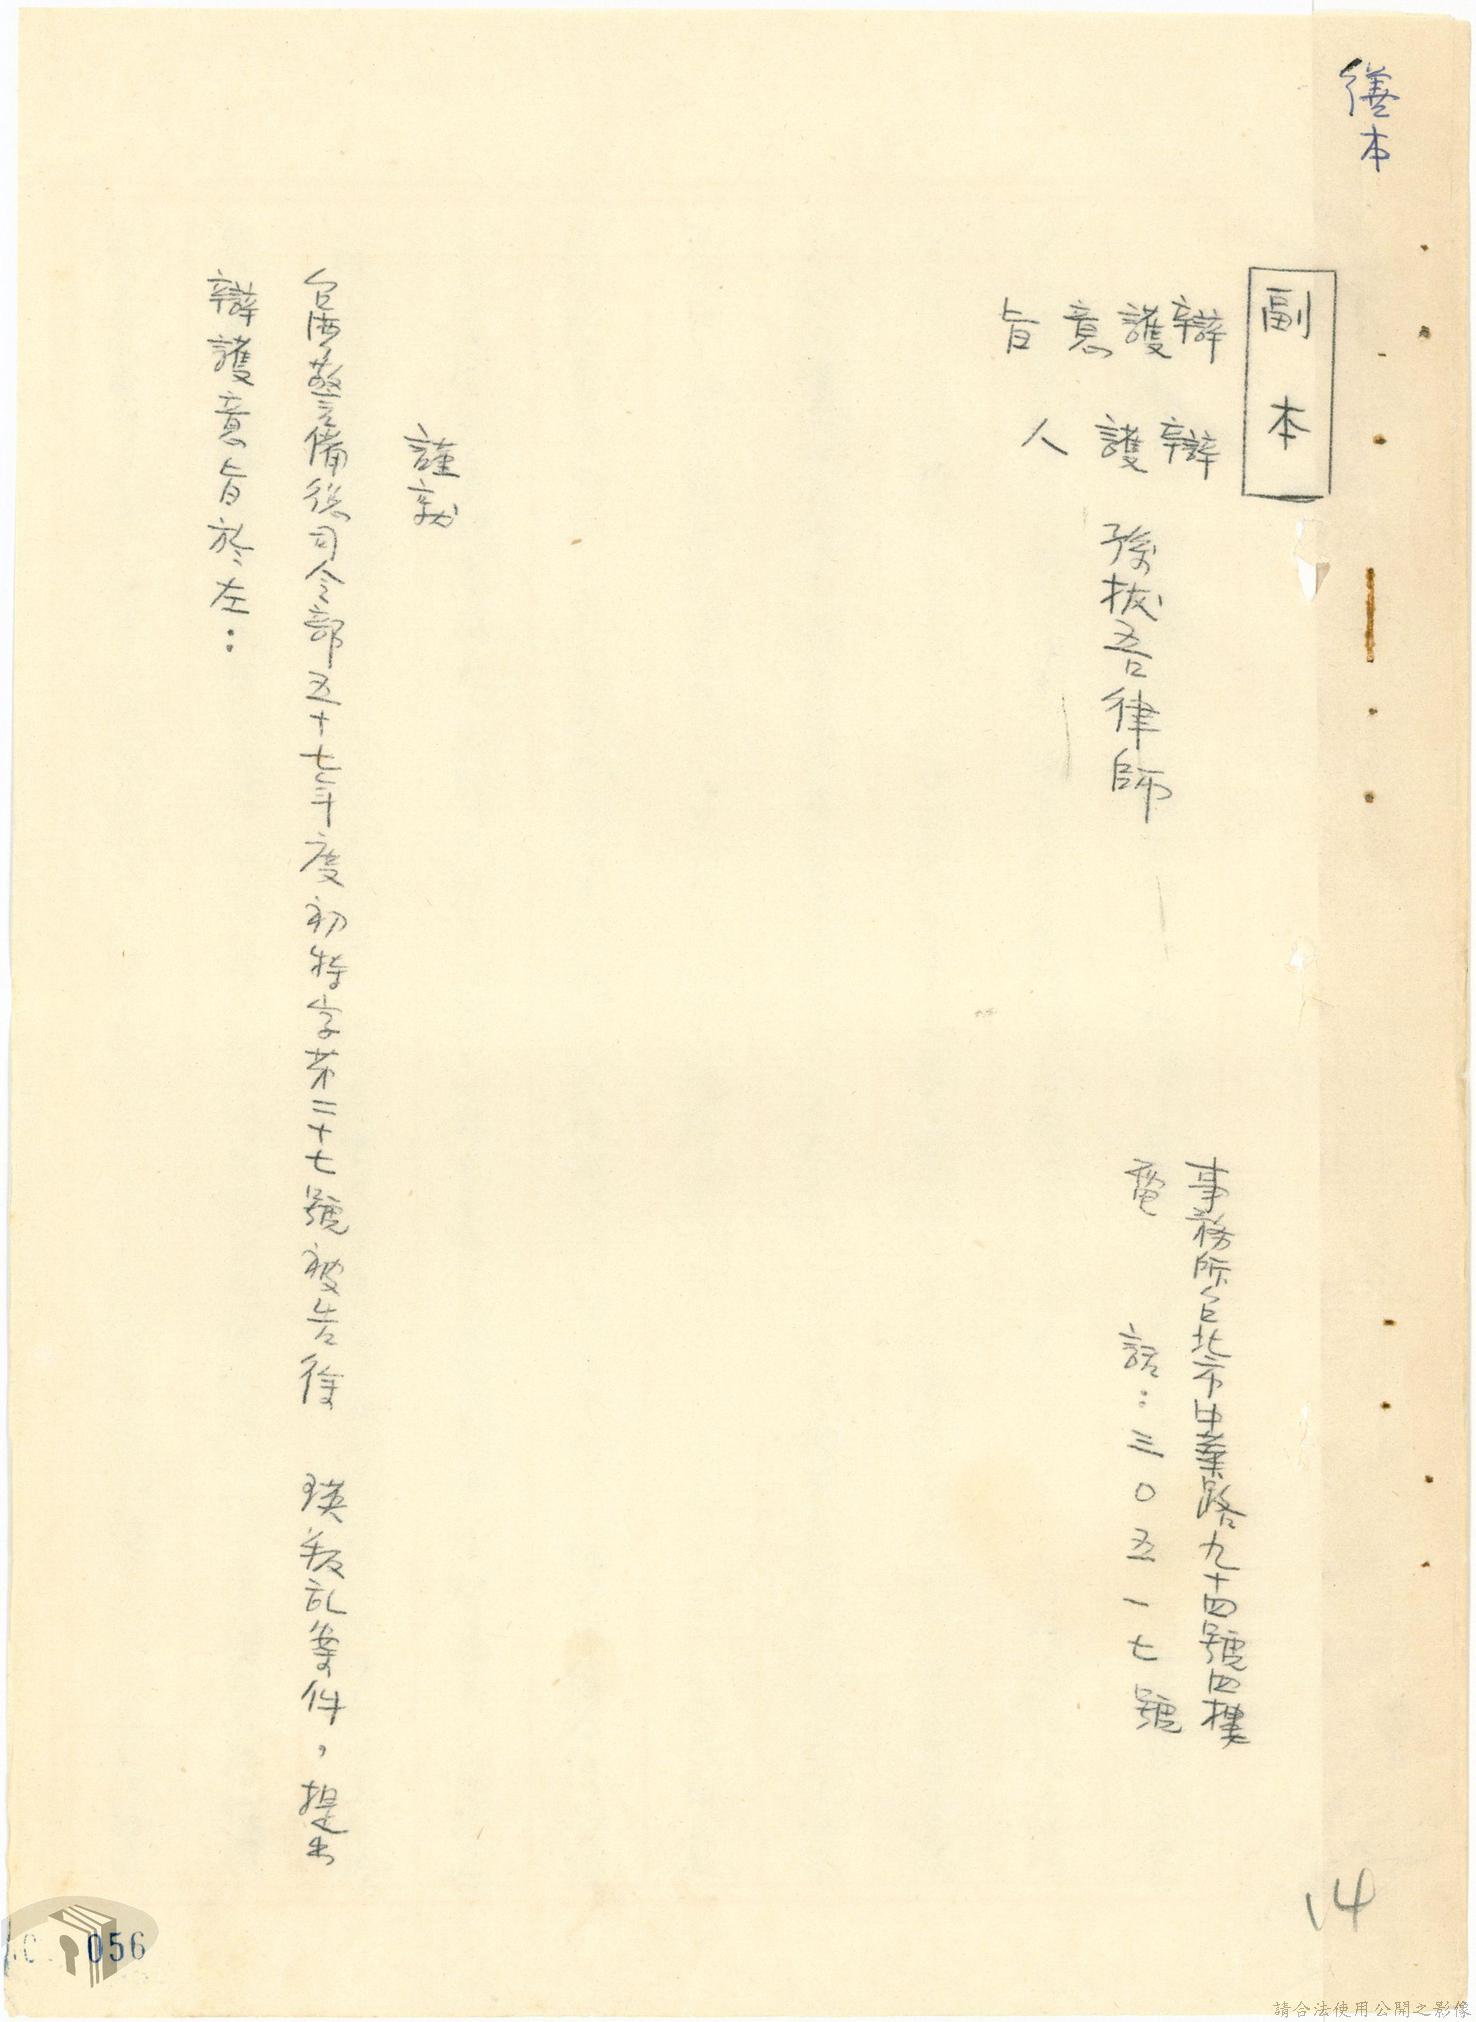 繕本
副本
辯護意旨
辯護人 孫拔吾律師
事務所台北市中華路九十四號四樓
電 話：三〇五一七號
謹就
台灣警備總司令部五十七年度初特字第二十七號被告徐 瑛叛乱案件，提出
辯護意旨於左：
14
056
請合法使用公開之影像